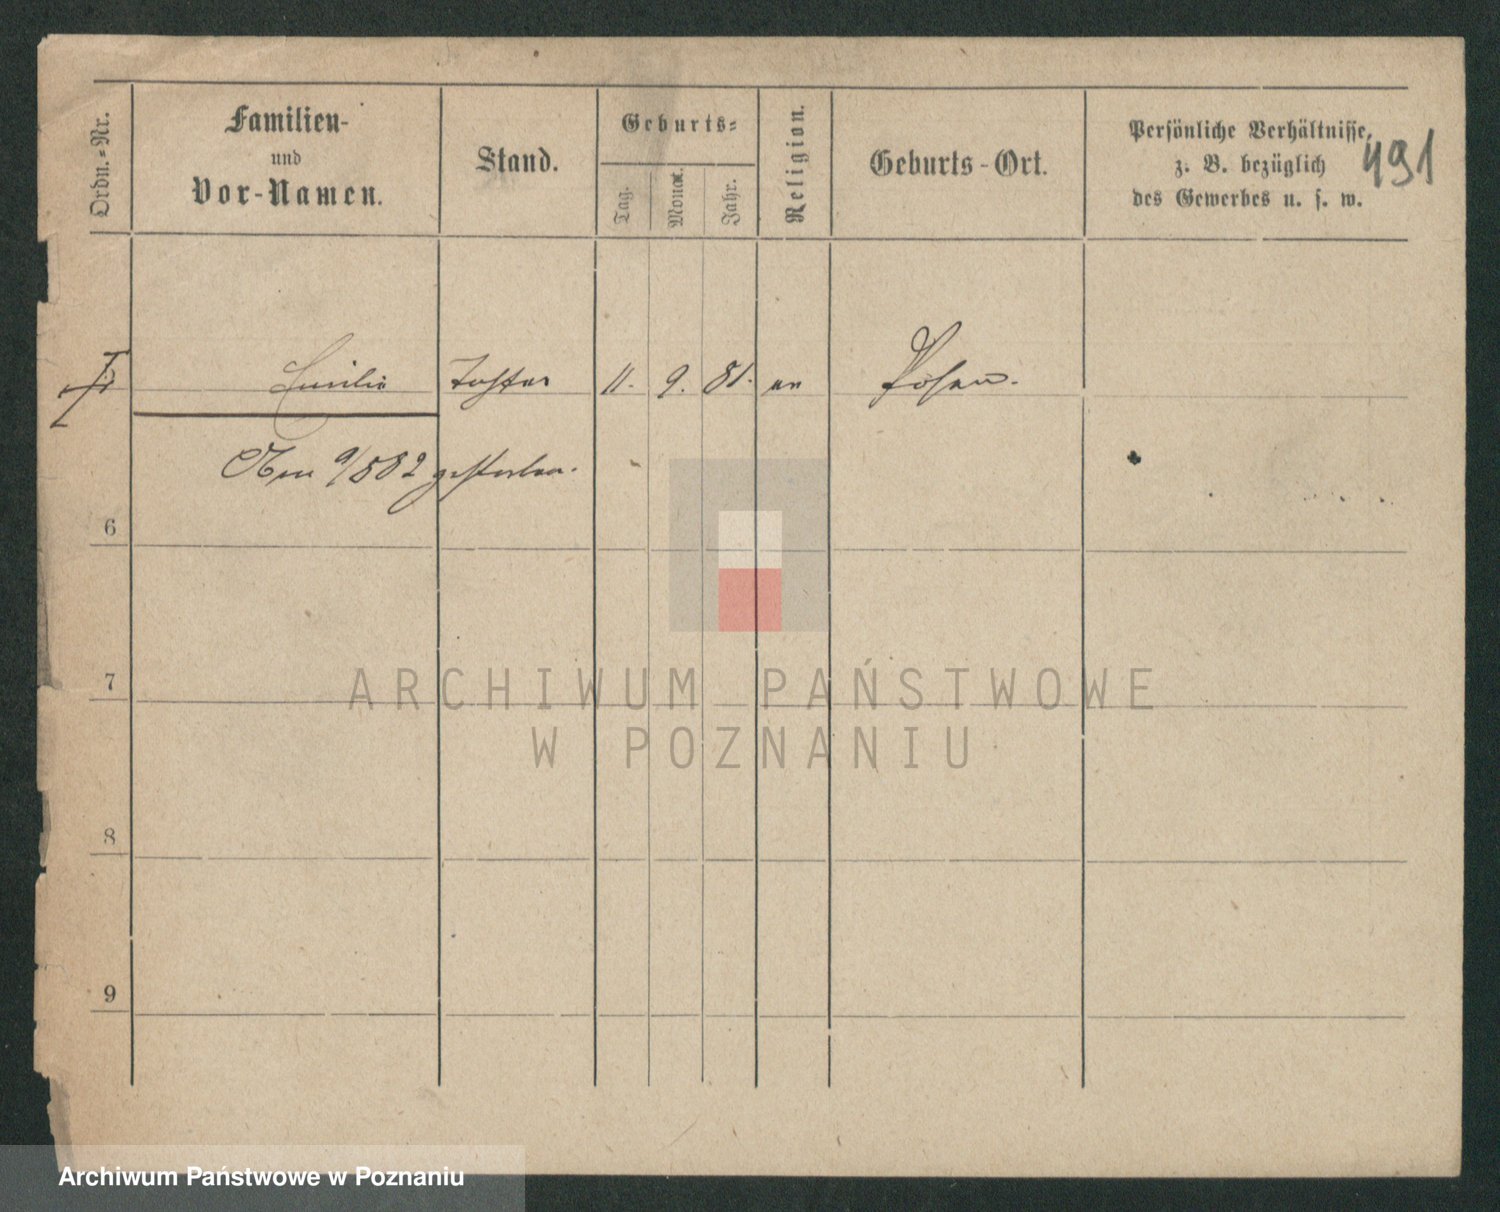 Ordn.-Nr.
Familien-
und
Vor-Namen.
Stand.
Geburts-
Tag.
Monat.
Jahr.
Religion.
Geburts-Ort.
Persönliche Verhältnisse,
z. B. bezüglich
des Gewerbes u. s. w.
491
Emilie Tochter 11. 9. 81. ev Posen.
Am 9/882 gestorben.
6
7
8
9
ARCHIWUM PAŃSTWOWE
W POZNANIU
Archiwum Państwowe w Poznaniu